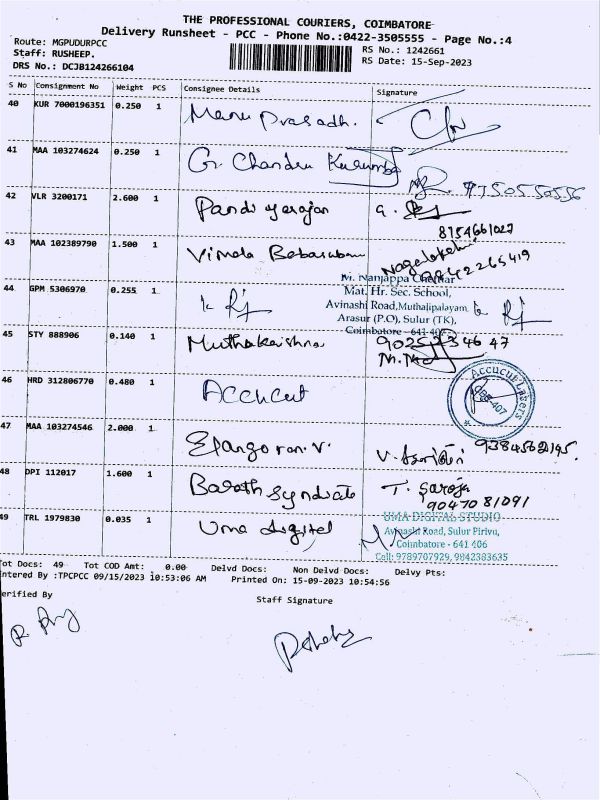 THE PROFESSIONAL COURIERS, COIMBATORE
Delivery Runsheet - PCC - Phone No.:0422-3505555 - Page No.:4
Route: MGPUDURPCC
Staff: RUSHEEP.
DRS No.: DCJB124266104
RS No.: 1242661
RS Date: 15-Sep-2023
S No Consignment No Weight PCS Consignee Details Signature
40 KUR 7000196351 0.250 1 Manu Prasadh.
41 MAA 103274624 0.250 1 G. Chandru
9750550556
42 VLR 3200171 2.600 1 Pandiyarajan
8154661027
43 MAA 102389790 1.500 1 Vimala
9842265419
44 GPM 5306970 0.255 1
M. Nanjappa Chettiar
Mat. Hr. Sec. School,
Avinashi Road, Muthalipalayam,
Arasur (P.O), Sulur (TK),
Coimbatore - 641 407
45 STY 888906 0.140 1 Muthukrishna
46 HRD 312806770 0.480 1 Accucut
Accucut Lasers
47 MAA 103274546 2.000 1 Elangovan. V.
48 DPI 112017 1.600 1 Barath Syndicate T. Saroja
9047081091
49 TRL 1979830 0.035 1 Uma digital
UMA DIGITAL STUDIO
Avinashi Road, Sulur Pirivu,
Coimbatore - 641 406
Cell: 9789707929, 9842383635
Tot Docs: 49 Tot COD Amt: 0.00 Delvd Docs: Non Delvd Docs: Delvy Pts:
ntered By :TPCPCC 09/15/2023 10:53:06 AM Printed On: 15-09-2023 10:54:56
erified By
Staff Signature